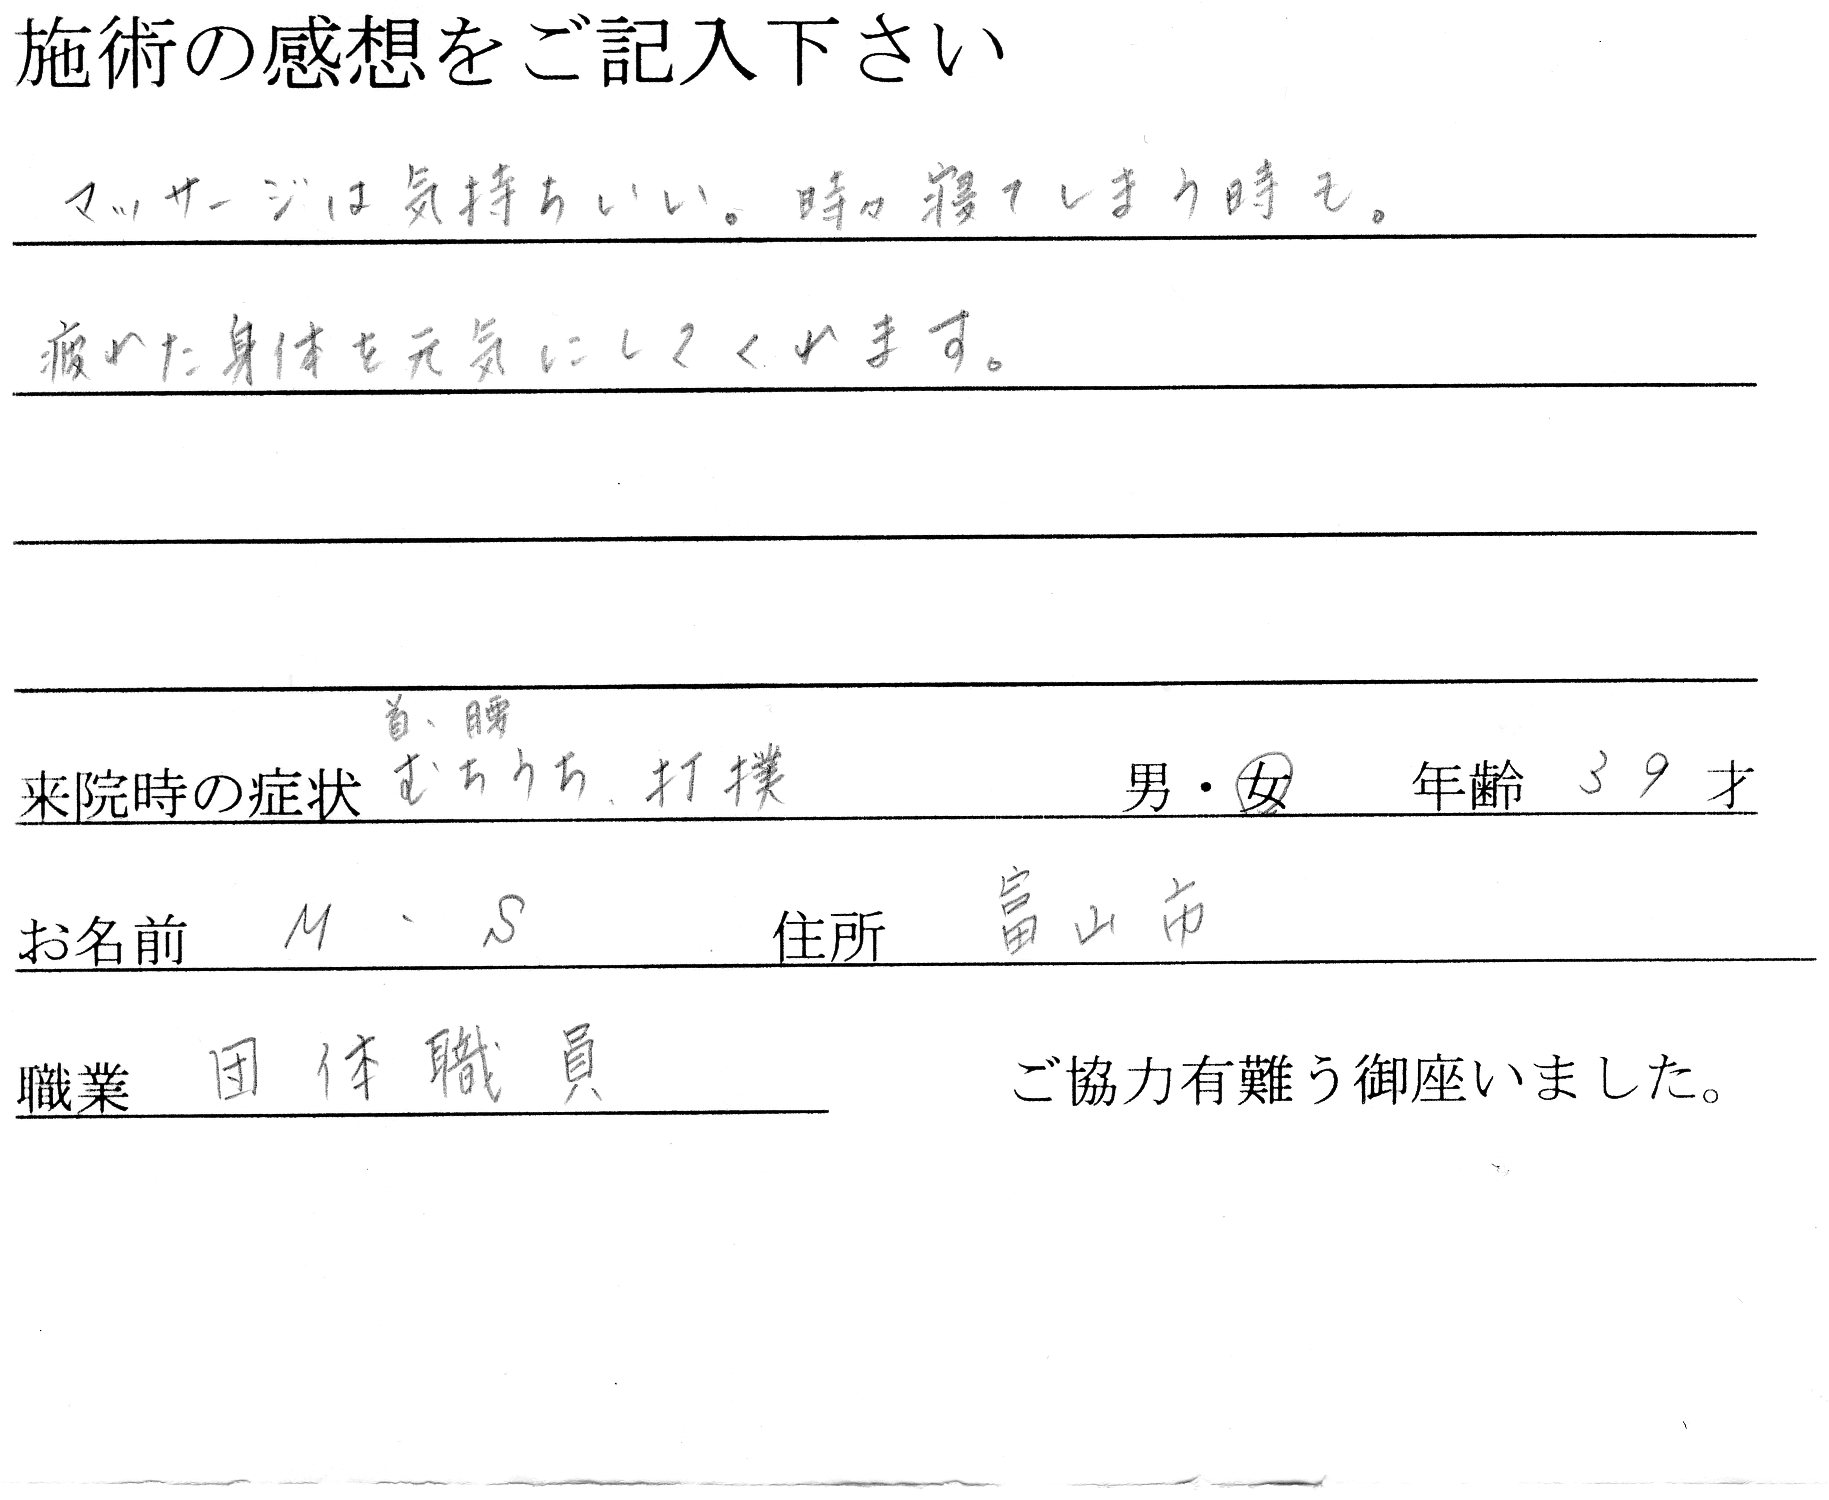 施術の感想をご記入下さい
マッサージは気持ちいい。時々寝てしまう時も。
疲れた身体を元気にしてくれます。
首、腰
来院時の症状 むちうち、打撲 男・女 年齢 39 才
お名前 M・S 住所 富山市
職業 団体職員 ご協力有難う御座いました。